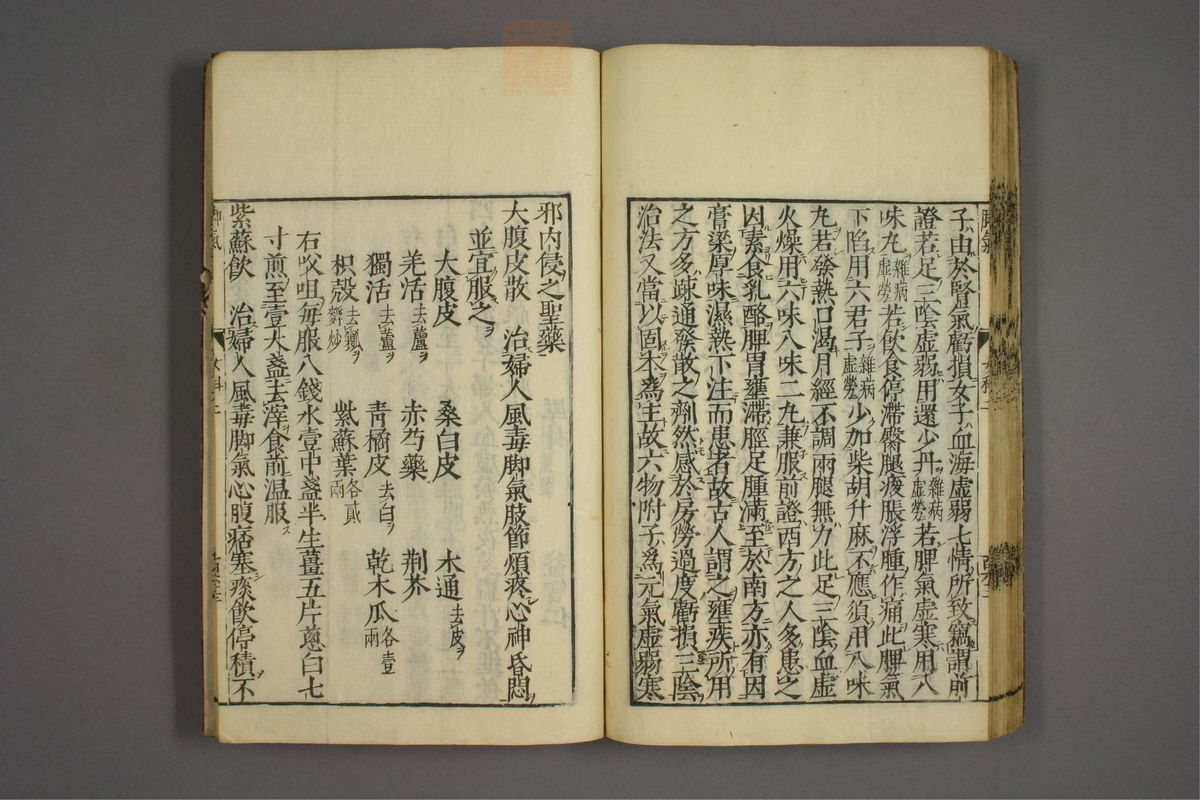 子由於腎氣虧損女子血海虛弱七情所致竊謂前
證若足三陰虛弱用還少丹雜病虛勞若脾氣虛寒用八
味丸雜病虛勞若飲食停滯臍腿痠脹浮腫作痛此脾氣
下陷用六君子雜病虛勞少加柴胡升麻不應須用八味
丸若發熱口渴月經不調兩腿無力此足三陰血虛
火燥用六味八味二丸兼服前證西方之人多患之
因素食乳酪脾胃壅滯脛足腫滿至於南方亦有因
膏粱厚味濕熱下注而患者故古人謂之壅疾所用
之方多疎通發散之劑然感於房勞過度虧損三陰
治法又當以固本為主故六物附子為元氣虛弱寒
邪內侵之聖藥
大腹皮散 治婦人風毒脚氣肢節煩疼心神昏悶
並宜服之
大腹皮 桑白皮 木通去皮
羌活去蘆 赤芍藥 荆芥
獨活去蘆 青橘皮去白 乾木瓜各壹兩
枳殼去穰麩炒 紫蘇葉各貳兩
右㕮咀每服八錢水壹中盞半生薑五片葱白七
寸煎至壹大盞去滓食前温服
紫蘇飲 治婦人風毒脚氣心腹痞塞痰飲停積不
脚氣